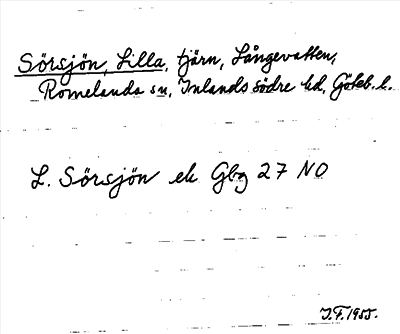 Sörsjön, Lilla, tjärn, Långevatten,
Romelanda sn, Inlands södre hd, Göteb. l.
L. Sörsjön ek Gbg 27 NO
J.F. 1955.